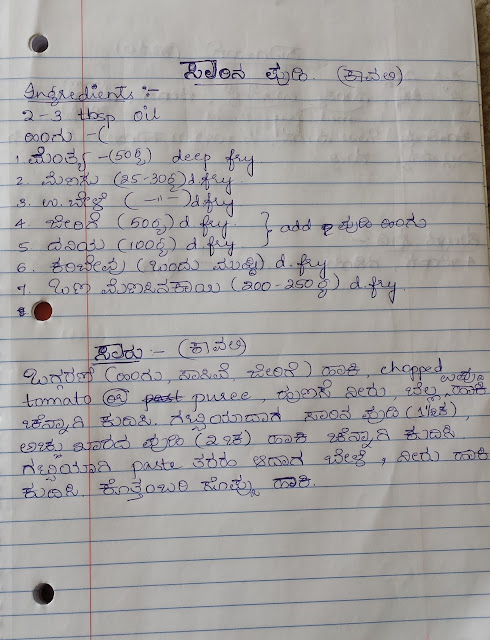 ಸಾರಿನ ಪುಡಿ. (ಕಾವಲಿ)
Ingredients :-
2-3 tbsp oil
ಹಿಂಗು -(
1. ಮೆಂತ್ಯ -(50ಗ್ರ) deep fry
2. ಮೆಣಸು (25-30ಗ್ರ) d.fry
3. ಉ.ಬೇಳೆ ( -"- ) d.fry
4. ಜೀರಿಗೆ (50ಗ್ರ) d fry
5. ದನಿಯ (100ಗ್ರ) d.fry } add ಪುಡಿ ಹಿಂಗು
6. ಕರಿಬೇವು (ಒಂದು ಮುಷ್ಟಿ) d.fry
7. ಒಣ ಮೆಣಸಿನಕಾಯಿ (200-250ಗ್ರ) d.fry
ಸಾರು :- (ಕಾವಲಿ)
ಒಗ್ಗರಣೆ (ಹಿಂಗು, ಸಾಸಿವೆ, ಜೀರಿಗೆ) ಹಾಕಿ, chopped
tomato or puree, ಹುಣಸೆ ನೀರು, ಬೆಲ್ಲ, ಉಪ್ಪು ಹಾಕಿ
ಚೆನ್ನಾಗಿ ಕುದಿಸಿ. ಗಟ್ಟಿಯಾದಾಗ ಸಾರಿನ ಪುಡಿ (1½ಚ)
ಅಚ್ಚ ಖಾರದ ಪುಡಿ (2ಚ) ಹಾಕಿ ಚೆನ್ನಾಗಿ ಕುದಿಸಿ
ಗಟ್ಟಿಯಾಗಿ paste ತರಹ ಆದಾಗ ಬೇಳೆ, ನೀರು ಹಾಕಿ
ಕುದಿಸಿ. ಕೊತ್ತಂಬರಿ ಸೊಪ್ಪು ಹಾಕಿ.